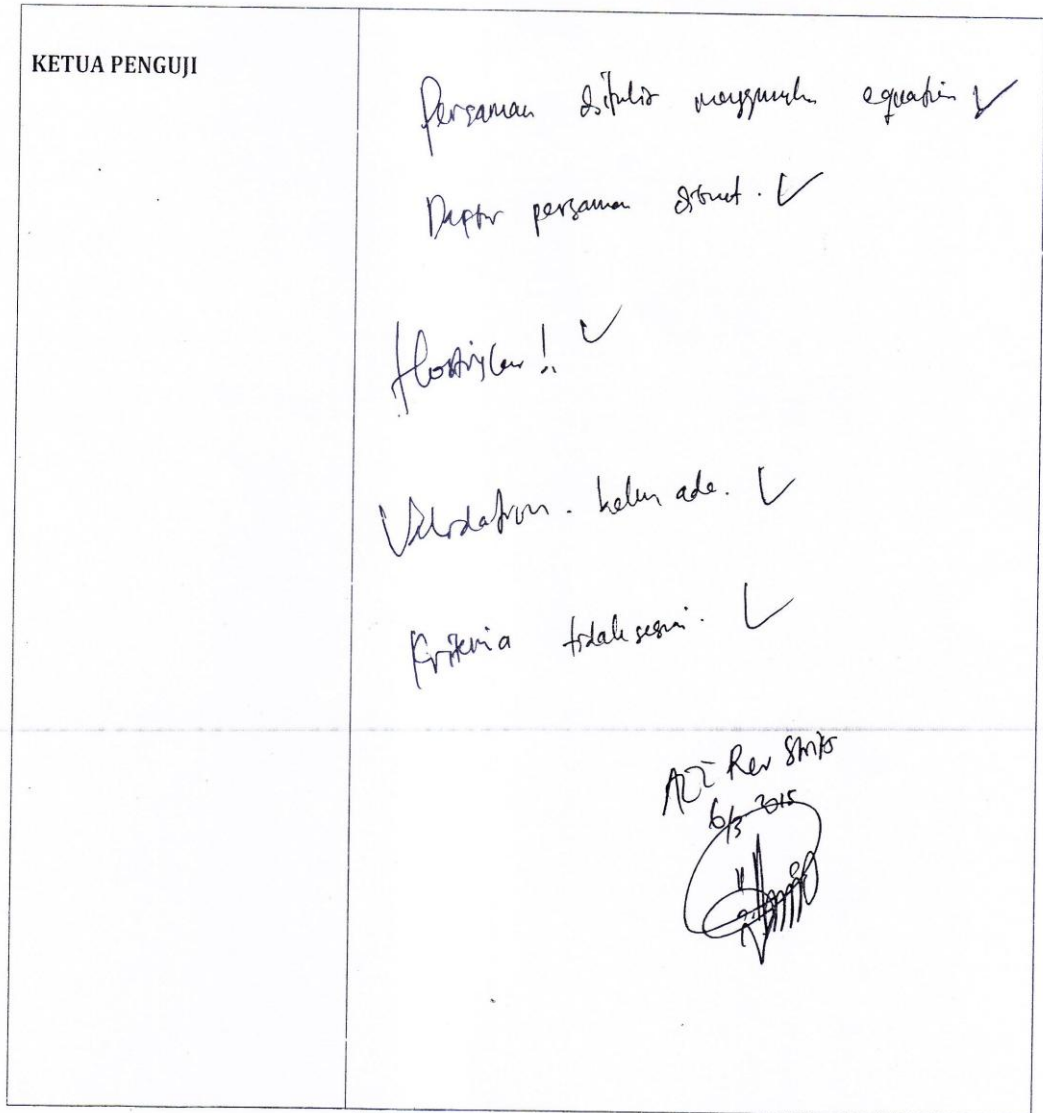 KETUA PENGUJI
Persamaan ditulis menggunakan equation
Daftar persamaan dibuat.
Hostingkan!
Validation. belum ada.
Kriteria tidak sesuai.
ACC Rev
6/3 2015